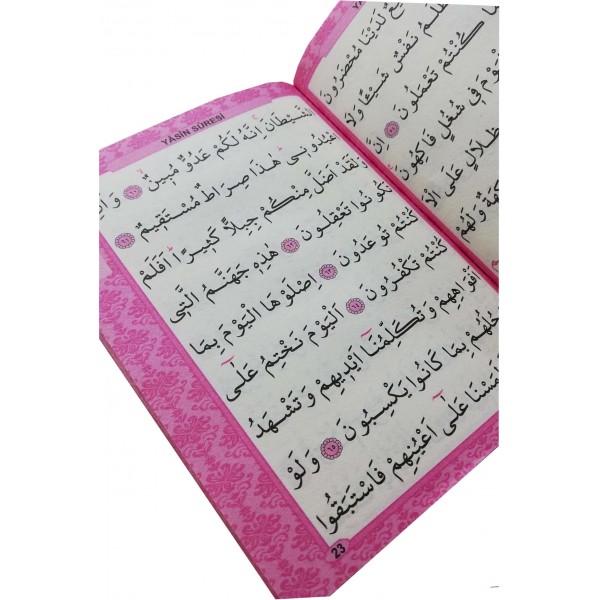 لَدَيْنَا مُحْضَرُونَ
نَفْسٌ شَيْئًا وَلَا
كُنْتُمْ تَعْمَلُونَ ﴿٥٤﴾
فِى شُغُلٍ فَاكِهُونَ
ظِلَالٍ عَلَى
وَلَهُمْ
YÂSÎN SÛRESİ
الشَّيْطَانَ اِنَّهُ لَكُمْ عَدُوٌّ مُبِينٌ ﴿٦٠﴾ وَاَنِ
اعْبُدُونِى هٰذَا صِرَاطٌ مُسْتَقِيمٌ ﴿٦١﴾
وَلَقَدْ اَضَلَّ مِنْكُمْ جِبِلًّا كَثِيرًا اَفَلَمْ
تَكُونُوا تَعْقِلُونَ ﴿٦٢﴾ هٰذِهِ جَهَنَّمُ الَّتِى
كُنْتُمْ تُوعَدُونَ ﴿٦٣﴾ اِصْلَوْهَا الْيَوْمَ بِمَا
كُنْتُمْ تَكْفُرُونَ ﴿٦٤﴾ اَلْيَوْمَ نَخْتِمُ عَلٰٓى
اَفْوَاهِهِمْ وَتُكَلِّمُنَٓا اَيْدِيهِمْ وَتَشْهَدُ
بِمَا كَانُوا يَكْسِبُونَ ﴿٦٥﴾ وَلَوْ
عَلٰٓى اَعْيُنِهِمْ فَاسْتَبَقُوا
23